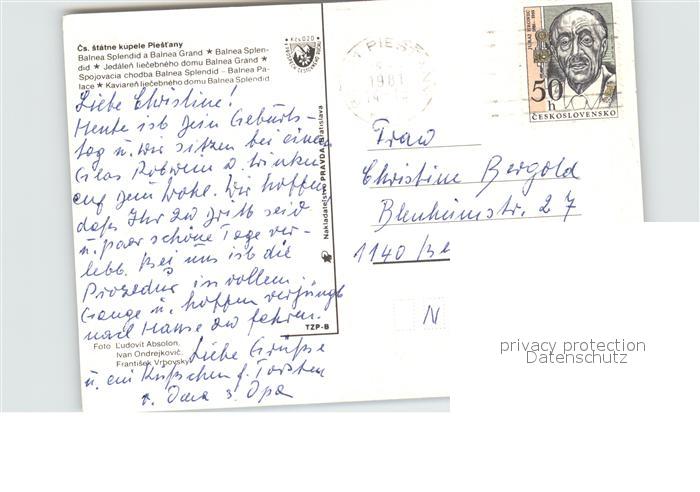 Čs. štátne kupele Piešťany
Balnea Splendid a Balnea Grand ★ Balnea Splen-
did ★ Jedáleň liečebného domu Balnea Grand ★
Spojovacia chodba Balnea Splendid – Balnea Pa-
lace ★ Kaviareň liečebného domu Balnea Splendid
Kčs 0,20
Liebe Christine!
Heute ist Dein Geburts-
tag u. wir sitzen bei einem
Glas Rotwein u. trinken
auf Dein Wohl. Wir hoffen
daß Ihr zu Dritt seid
u. paar schöne Tage ver-
lebt. Bei uns ist die
Prozedur in vollem
Gange u. hoffen verjüngt
nach Hause zu fahren.
Liebe Grüße
u. ein Küßchen f. Torsten
v. Oma u. Opa
Foto: Ľudovít Absolon,
Ivan Ondrejkovič,
František Vrbovský
Nakladateľstvo PRAVDA Bratislava
TZP-B
PIEŠŤANY
1981
50 h
ČESKOSLOVENSKO
Frau
Christine Bergold
Blenheimstr. 27
1140 Be
N
privacy protection
Datenschutz